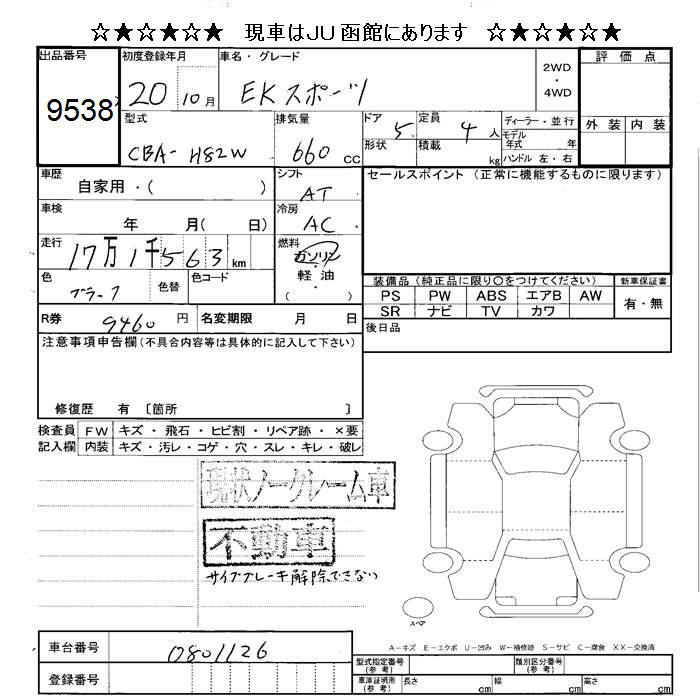 ☆★☆★☆★ 現車はJU函館にあります ☆★☆★☆★
出品番号
9538
初度登録年月
20 10月
車名・グレード
EKスポーツ
2WD
・
4WD
評価点
外装 内装
型式
CBA- H82W
排気量
660 cc
ドア 5
形状
定員 4 人
積載 kg
ディーラー・並行
モデル年式 年
ハンドル 左・右
車歴
自家用・( )
シフト
AT
セールスポイント (正常に機能するものに限ります)
車検
年 月( 日)
冷房
AC
走行
17万1千563 km
燃料
ガソリン
・
軽油
( )
色
ブラック
色替
色コード
装備品 (純正品に限り〇をつけてください)
PS PW ABS エアB AW
SR ナビ TV カワ
新車保証書
有・無
R券 9460 円
名変期限 月 日
後日品
注意事項申告欄(不具合内容等は具体的に記入して下さい)
修復歴 有 〔箇所 〕
検査員記入欄
FW キズ・飛石・ヒビ割・リペア跡・×要
内装 キズ・汚レ・コゲ・穴・スレ・キレ・破レ
現状ノークレーム車
不動車
サイドブレーキ解除できない
スペア
A-キズ E-エクボ U-凹み W-補修跡 S-サビ C-腐食 XX-交換済
車台番号 0801126
登録番号
型式指定番号(参考)
類別区分番号(参考)
車庫証明用(参考)
長さ cm 幅 cm 高さ cm